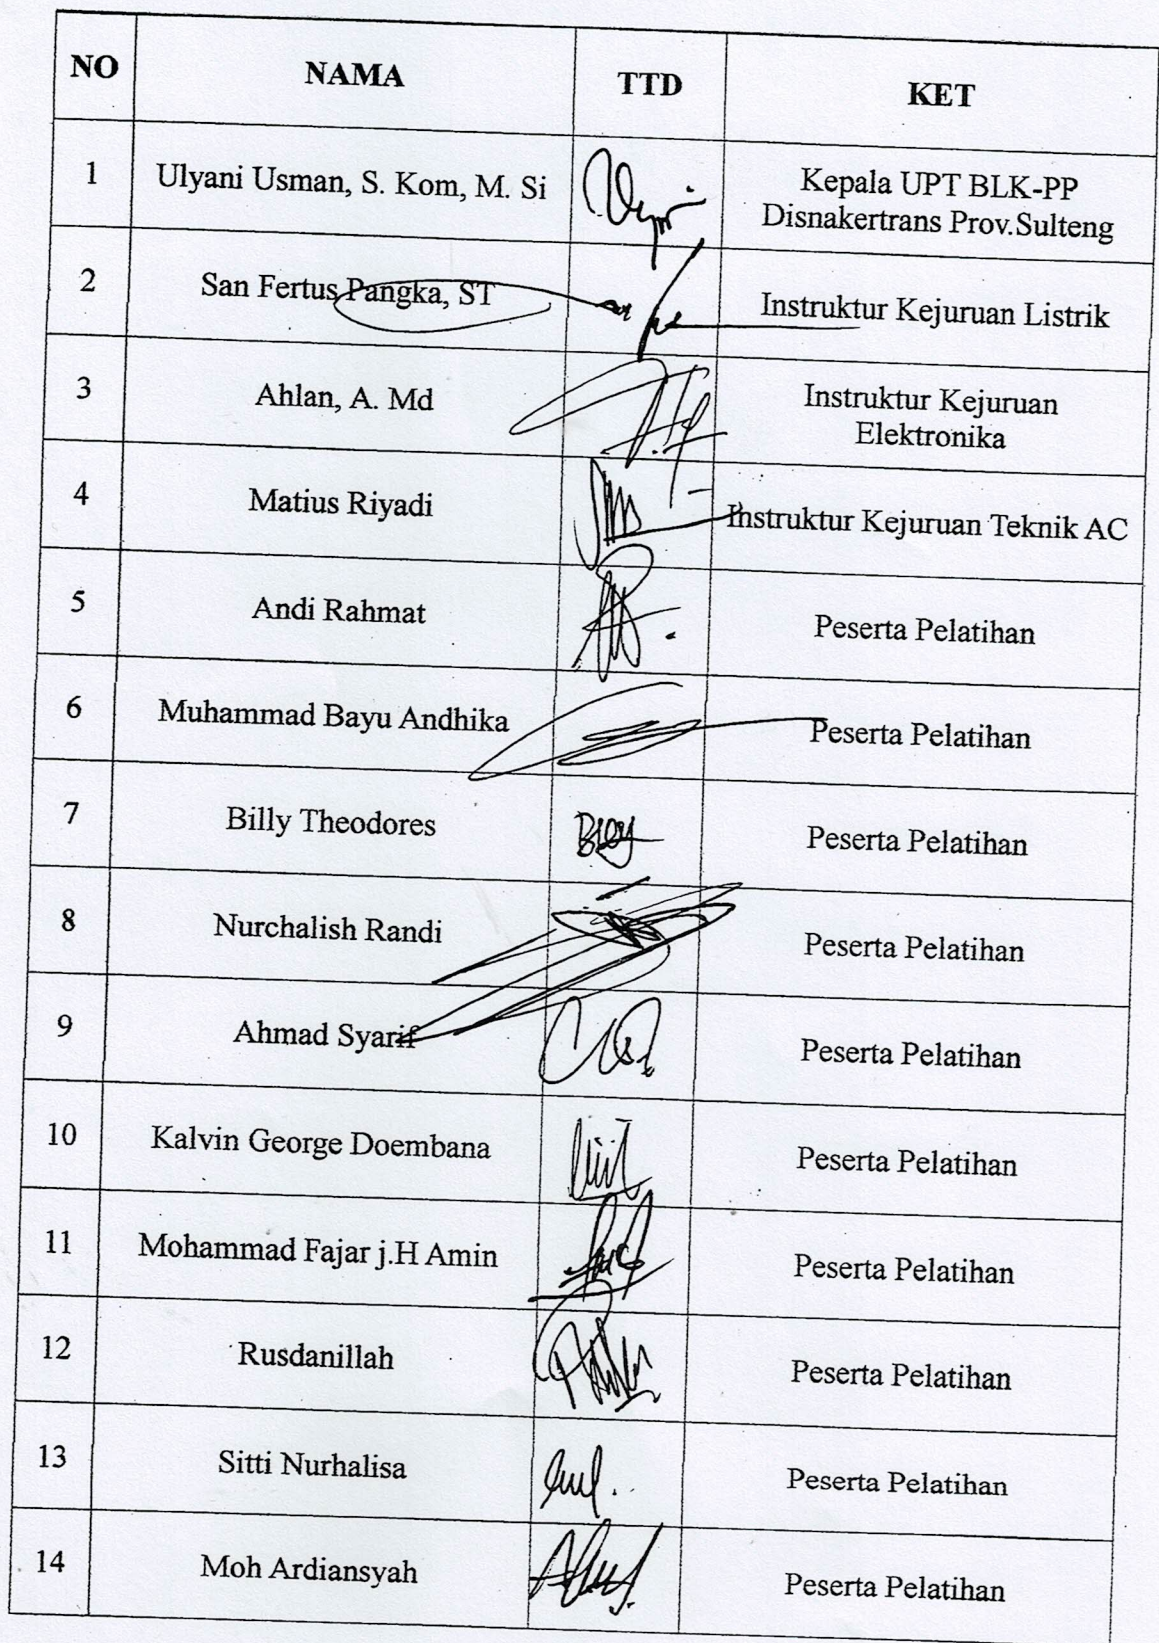 NO NAMA TTD KET
1 Ulyani Usman, S. Kom, M. Si Kepala UPT BLK-PP
Disnakertrans Prov.Sulteng
2 San Fertus Pangka, ST Instruktur Kejuruan Listrik
3 Ahlan, A. Md Instruktur Kejuruan
Elektronika
4 Matius Riyadi Instruktur Kejuruan Teknik AC
5 Andi Rahmat Peserta Pelatihan
6 Muhammad Bayu Andhika Peserta Pelatihan
7 Billy Theodores Peserta Pelatihan
8 Nurchalish Randi Peserta Pelatihan
9 Ahmad Syarif Peserta Pelatihan
10 Kalvin George Doembana Peserta Pelatihan
11 Mohammad Fajar j.H Amin Peserta Pelatihan
12 Rusdanillah Peserta Pelatihan
13 Sitti Nurhalisa Peserta Pelatihan
14 Moh Ardiansyah Peserta Pelatihan